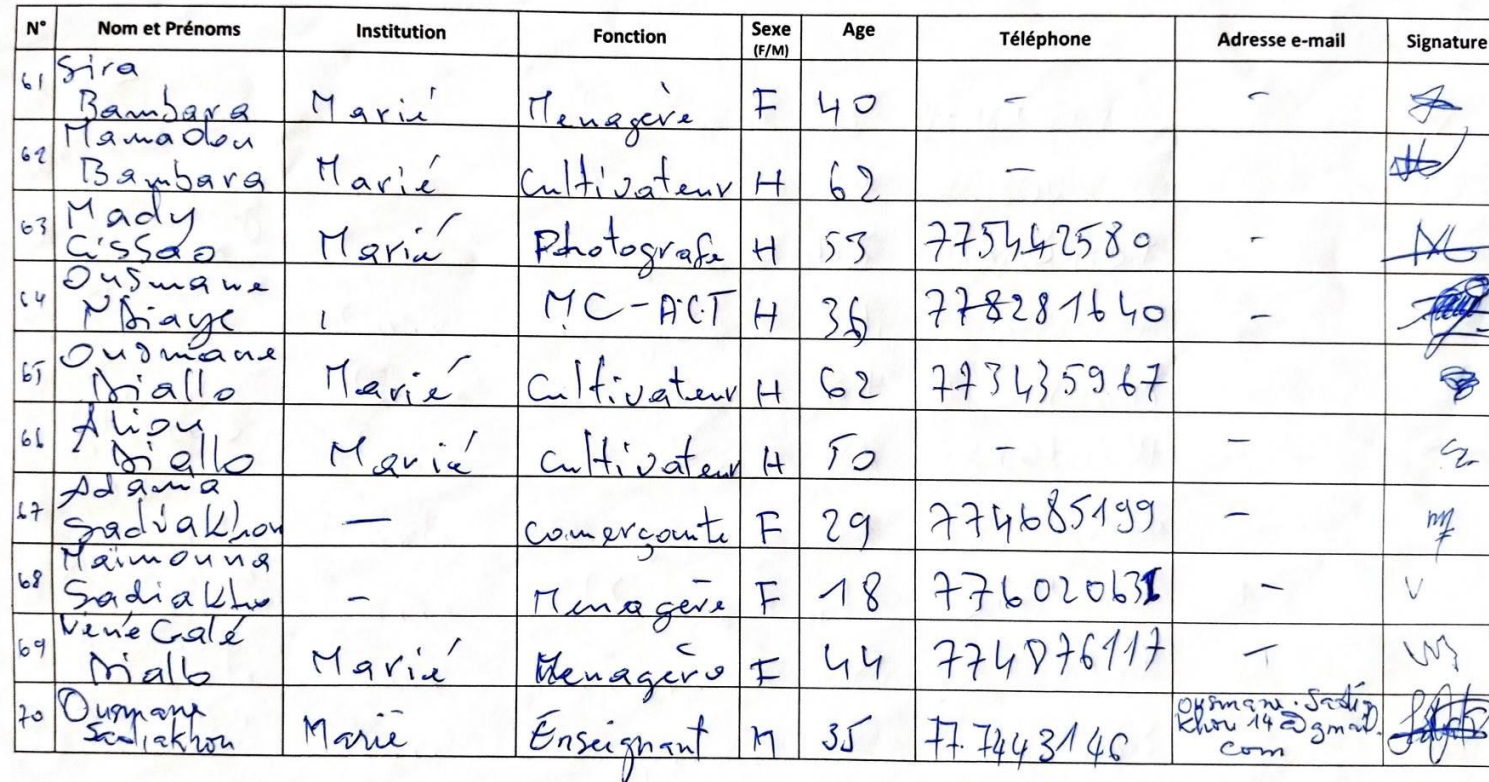 N° Nom et Prénoms Institution Fonction Sexe (F/M) Age Téléphone Adresse e-mail Signature
61 Sira Bambara Marié Menagère F 40 - -
62 Mamadou Bambara Marié Cultivateur H 62 -
63 Mady Cissao Marié Photografe H 53 775442580 -
64 Ousmane NDiaye MC-ACT H 36 778281640 -
65 Ousmane Diallo Marié Cultivateur H 62 773435967
66 Aliou Diallo Marié Cultivateur H 50 - -
67 Adama Sadiakhou — Comerçante F 29 774685199 -
68 Maimouna Sadiakho - Menagère F 18 776020631 -
69 Diallo Marié Menagère F 44 774876117 -
70 Ousmane Sadiakhou Marié Enseignant M 35 777443146 ousmane.sadiakhou14@gmail.com